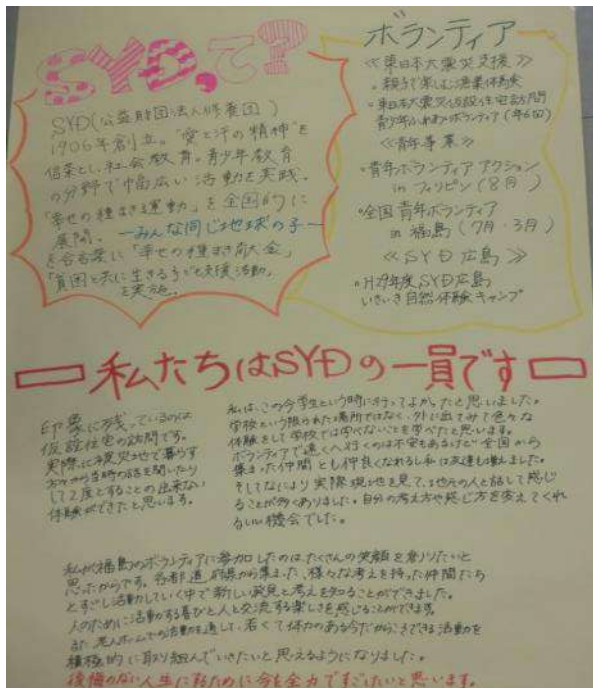 SYDって?
SYD(公益財団法人修養団)
1906年創立。"愛と汗の精神"を
信条とし、社会教育。青少年教育
の分野で幅広い活動を実践。
「幸せの種まき運動」を全国的に
展開。 ―みんな同じ地球の子―
を合言葉に「幸せの種まき募金」
「貧困と共に生きる子ども支援活動」
を実施。
ボランティア
≪東日本大震災支援≫
・親子で楽しむ漁業体験
・東日本大震災仮設住宅訪問
青少年ふれあいボランティア(年6回)
≪青年事業≫
・青年ボランティアアクション
in フィリピン(8月)
・全国青年ボランティア
in 福島(7月・3月)
≪SYD広島≫
・H29年度SYD広島
いきいき自然体験キャンプ
私たちはSYDの一員です
印象に残っているのは
仮設住宅の訪問です。
実際に被災地で暮らす
方々から当時の話を聞いたり
して2度とすることの出来ない
体験ができたと思います。
私は、この今学生という時に行ってよかったと思いました。
学校という限られた場所ではなく、外に出てみて色々な
体験をして学校では学べないことを学べたと思います。
ボランティアで遠くへ行くのは不安もあるけど全国から
集まった仲間とも仲良くなれるし私は友達も増えました。
そしてなにより実際現地を見て、地元の人と話して感じ
ることが多くありました。自分の考え方や感じ方を変えてくれ
るいい機会でした。
私が福島のボランティアに参加したのはたくさんの笑顔を創りたいと
思ったからです。各都道府県から集まった、様々な考えを持った仲間たち
とすごし活動していく中で新しい発見と考えを知ることができました。
人のために活動する喜びと人と交流する楽しさを感じることができます。
また、老人ホームでの活動を通して、若くて体力のある今だからこそできる活動を
積極的に取り組んでいきたいと思えるようになりました。
後悔のない人生にするために今を全力ですごしたいと思います。